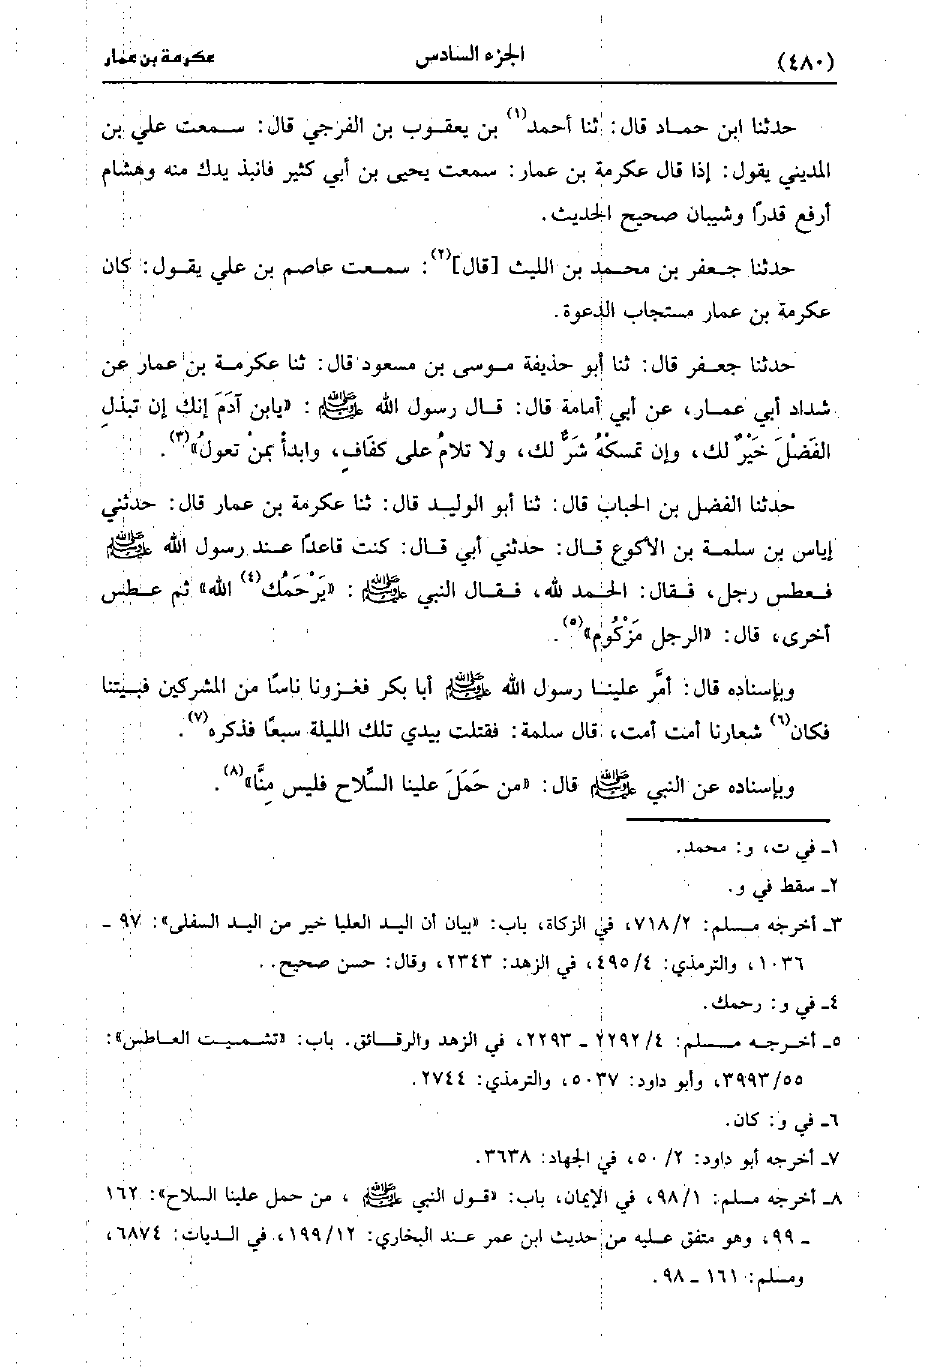 (٤٨٠) الجزء السادس عكرمة بن عمار
حدثنا ابن حماد قال: ثنا أحمد(١) بن يعقوب بن الفرجي قال: سمعت علي بن
المديني يقول: إذا قال عكرمة بن عمار: سمعت يحيى بن أبي كثير فانبذ يدك منه وهشام
أرفع قدرًا وشيبان صحيح الحديث.
حدثنا جعفر بن محمد بن الليث [قال](٢): سمعت عاصم بن علي يقول: كان
عكرمة بن عمار مستجاب الدعوة.
حدثنا جعفر قال: ثنا أبو حذيفة موسى بن مسعود قال: ثنا عكرمة بن عمار عن
شداد أبي عمار، عن أبي أمامة قال: قال رسول الله ﷺ : «يابن آدَمَ إنك إن تبذلِ
الفَضْلَ خَيْرٌ لك، وإن تمسكْهُ شَرٌّ لك، ولا تلامُ على كفَافٍ، وابدأْ بمنْ تعولُ»(٣).
حدثنا الفضل بن الحباب قال: ثنا أبو الوليد قال: ثنا عكرمة بن عمار قال: حدثني
إياس بن سلمة بن الأكوع قال: حدثني أبي قال: كنت قاعدًا عند رسول الله ﷺ
فعطس رجل، فقال: الحمد لله، فقال النبي ﷺ : «يَرْحَمُك(٤) الله» ثم عطس
أخرى، قال: «الرجل مَزْكُوم»(٥).
وبإسناده قال: أمَّر علينا رسول الله ﷺ أبا بكر فغزونا ناسًا من المشركين فبيتنا
فكان(٦) شعارنا أمت أمت، قال سلمة: فقتلت بيدي تلك الليلة سبعًا فذكره(٧).
وبإسناده عن النبي ﷺ قال: «من حَمَلَ علينا السِّلاح فليس مِنَّا»(٨).
١ـ في ت، و: محمد.
٢ـ سقط في و.
٣ـ أخرجه مسلم: ٧١٨/٢، في الزكاة، باب: «بيان أن اليد العليا خير من اليد السفلى»: ٩٧ ـ
١٠٣٦، والترمذي: ٤٩٥/٤، في الزهد: ٢٣٤٣، وقال: حسن صحيح..
٤ـ في و: رحمك.
٥ـ أخرجه مسلم: ٢٢٩٢/٤ ـ ٢٢٩٣، في الزهد والرقائق. باب: «تشميت العاطس»:
٣٩٩٣/٥٥، وأبو داود: ٥٠٣٧، والترمذي: ٢٧٤٤.
٦ـ في و: كان.
٧ـ أخرجه أبو داود: ٥٠/٢، في الجهاد: ٣٦٣٨.
٨ـ أخرجه مسلم: ٩٨/١، في الإيمان، باب: «قول النبي ﷺ ، من حمل علينا السلاح»: ١٦٢
ـ ٩٩، وهو متفق عليه من حديث ابن عمر عند البخاري: ١٩٩/١٢، في الديات: ٦٨٧٤،
ومسلم: ١٦١ ـ ٩٨.